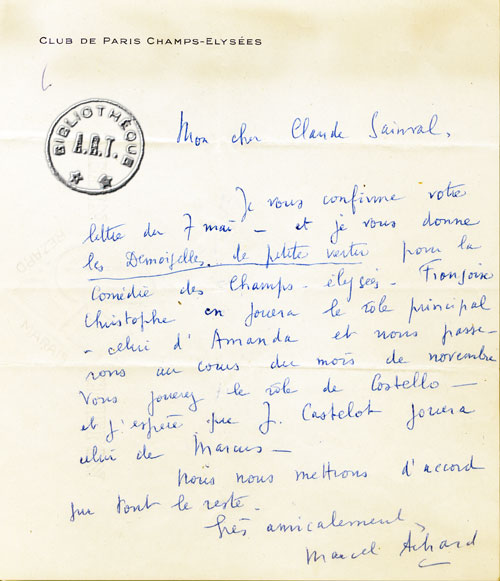 CLUB DE PARIS CHAMPS-ELYSÉES
BIBLIOTHÈQUE
A.R.T.
Mon cher Claude Sainval,
Je vous confirme votre
lettre du 7 mai – et je vous donne
les Demoiselles de petite vertu pour la
Comédie des Champs-élysées. Françoise
Christophe en jouera le rôle principal
– celui d'Amanda et nous passe-
rons au cours du mois de novembre
Vous jouerez le rôle de Costello –
et j'espère que J. Castelot jouera
celui de Marcus –
Nous nous mettrons d'accord
sur tout le reste.
Très amicalement,
Marcel Achard